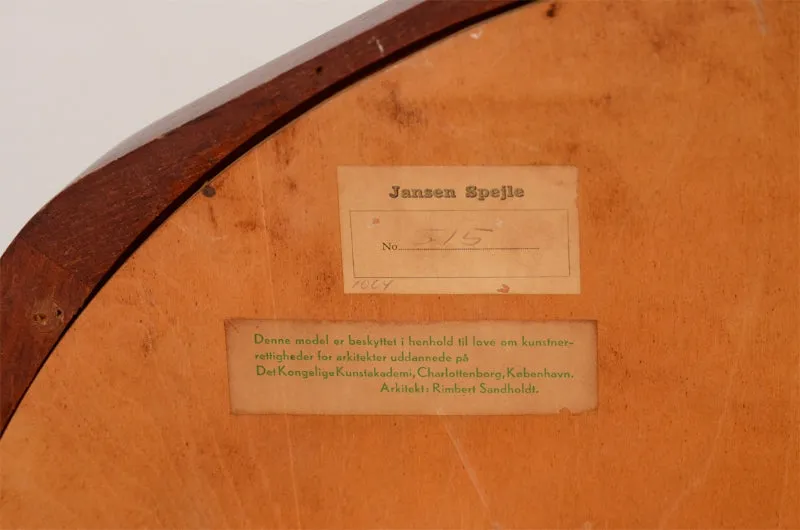 Jansen Spejle
No. 515
1064
Denne model er beskyttet i henhold til love om kunstner-
rettigheder for arkitekter uddannede på
Det Kongelige Kunstakademi, Charlottenborg, København.
Arkitekt: Rimbert Sandholdt.